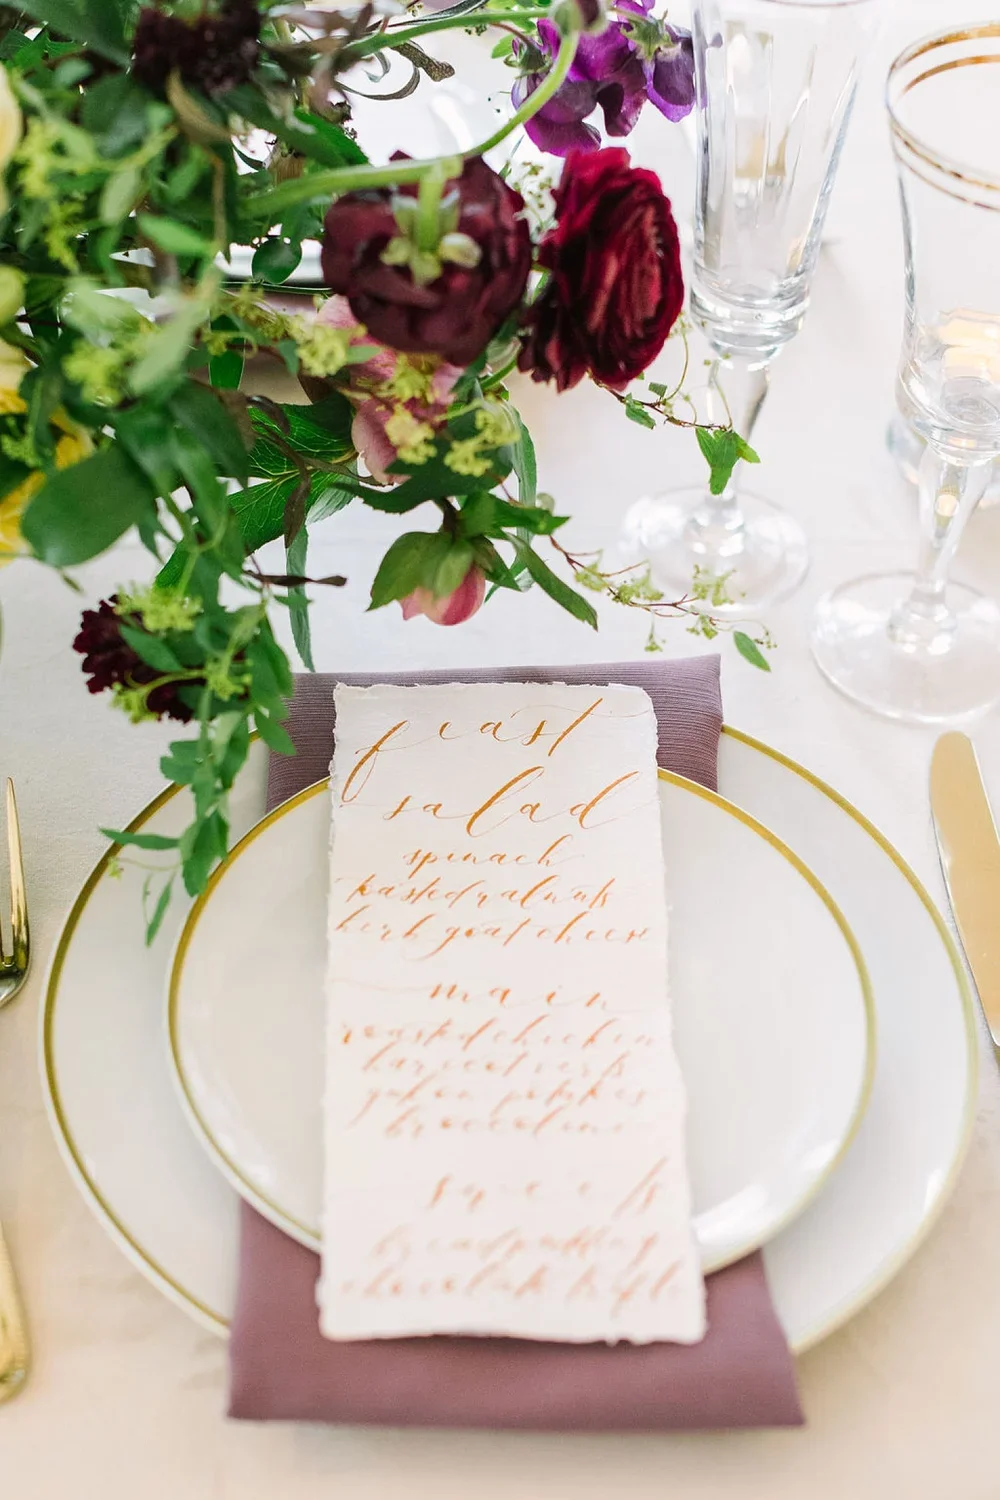 feast
salad
spinach
toasted walnuts
herb goat cheese
main
roasted chicken
haricot verts
yukon potatoes
broccolini
sweets
bread pudding
chocolate truffle